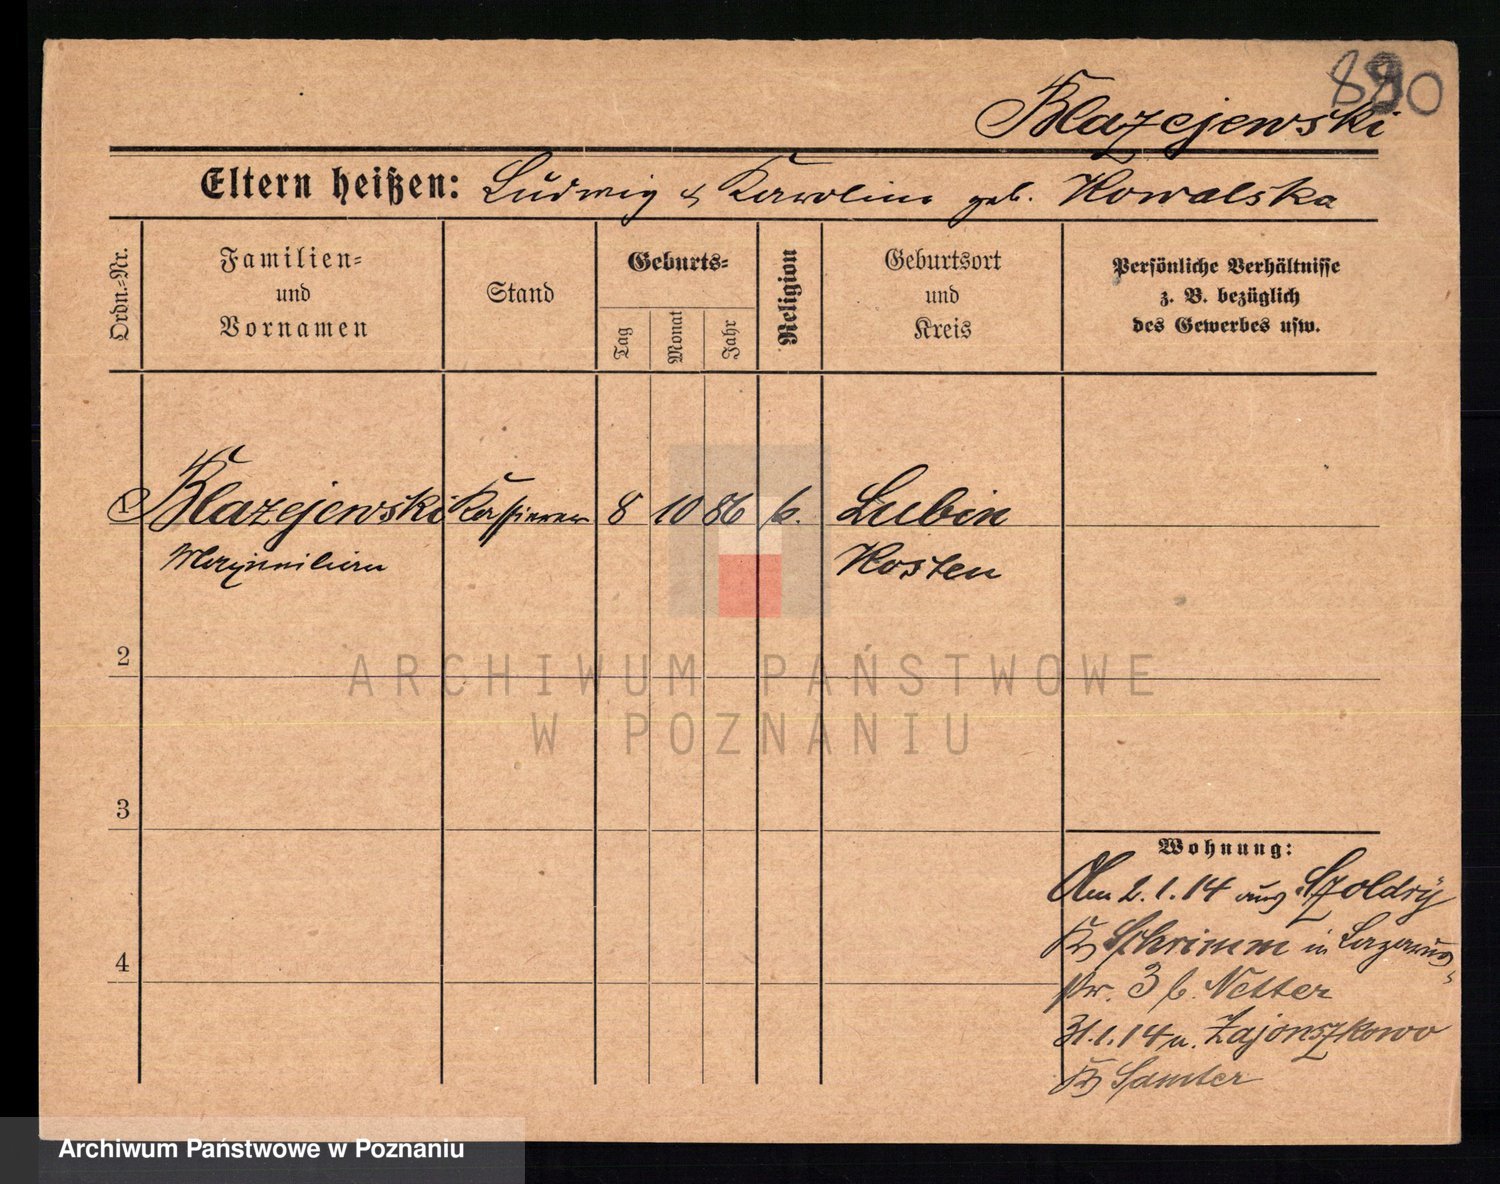 890
Blazejewski
Eltern heißen: Ludwig & Karolina geb. Kowalska
Ordn.=Nr.
Familien=
und
Vornamen
Stand
Geburts=
Tag
Monat
Jahr
Religion
Geburtsort
und
Kreis
Persönliche Verhältnisse
z. B. bezüglich
des Gewerbes usw.
1 Blazejewski Kassierer 8 10 86 k. Lubin
Maximilian Kosten
2
3
4
Wohnung:
Am 2.1.14 aus Szoldry
Kr Schrimm in Lazarus-
str. 3 b. Netter
31.1.14 n. Zajonszkowo
Kr Samter
ARCHIWUM PAŃSTWOWE
W POZNANIU
Archiwum Państwowe w Poznaniu